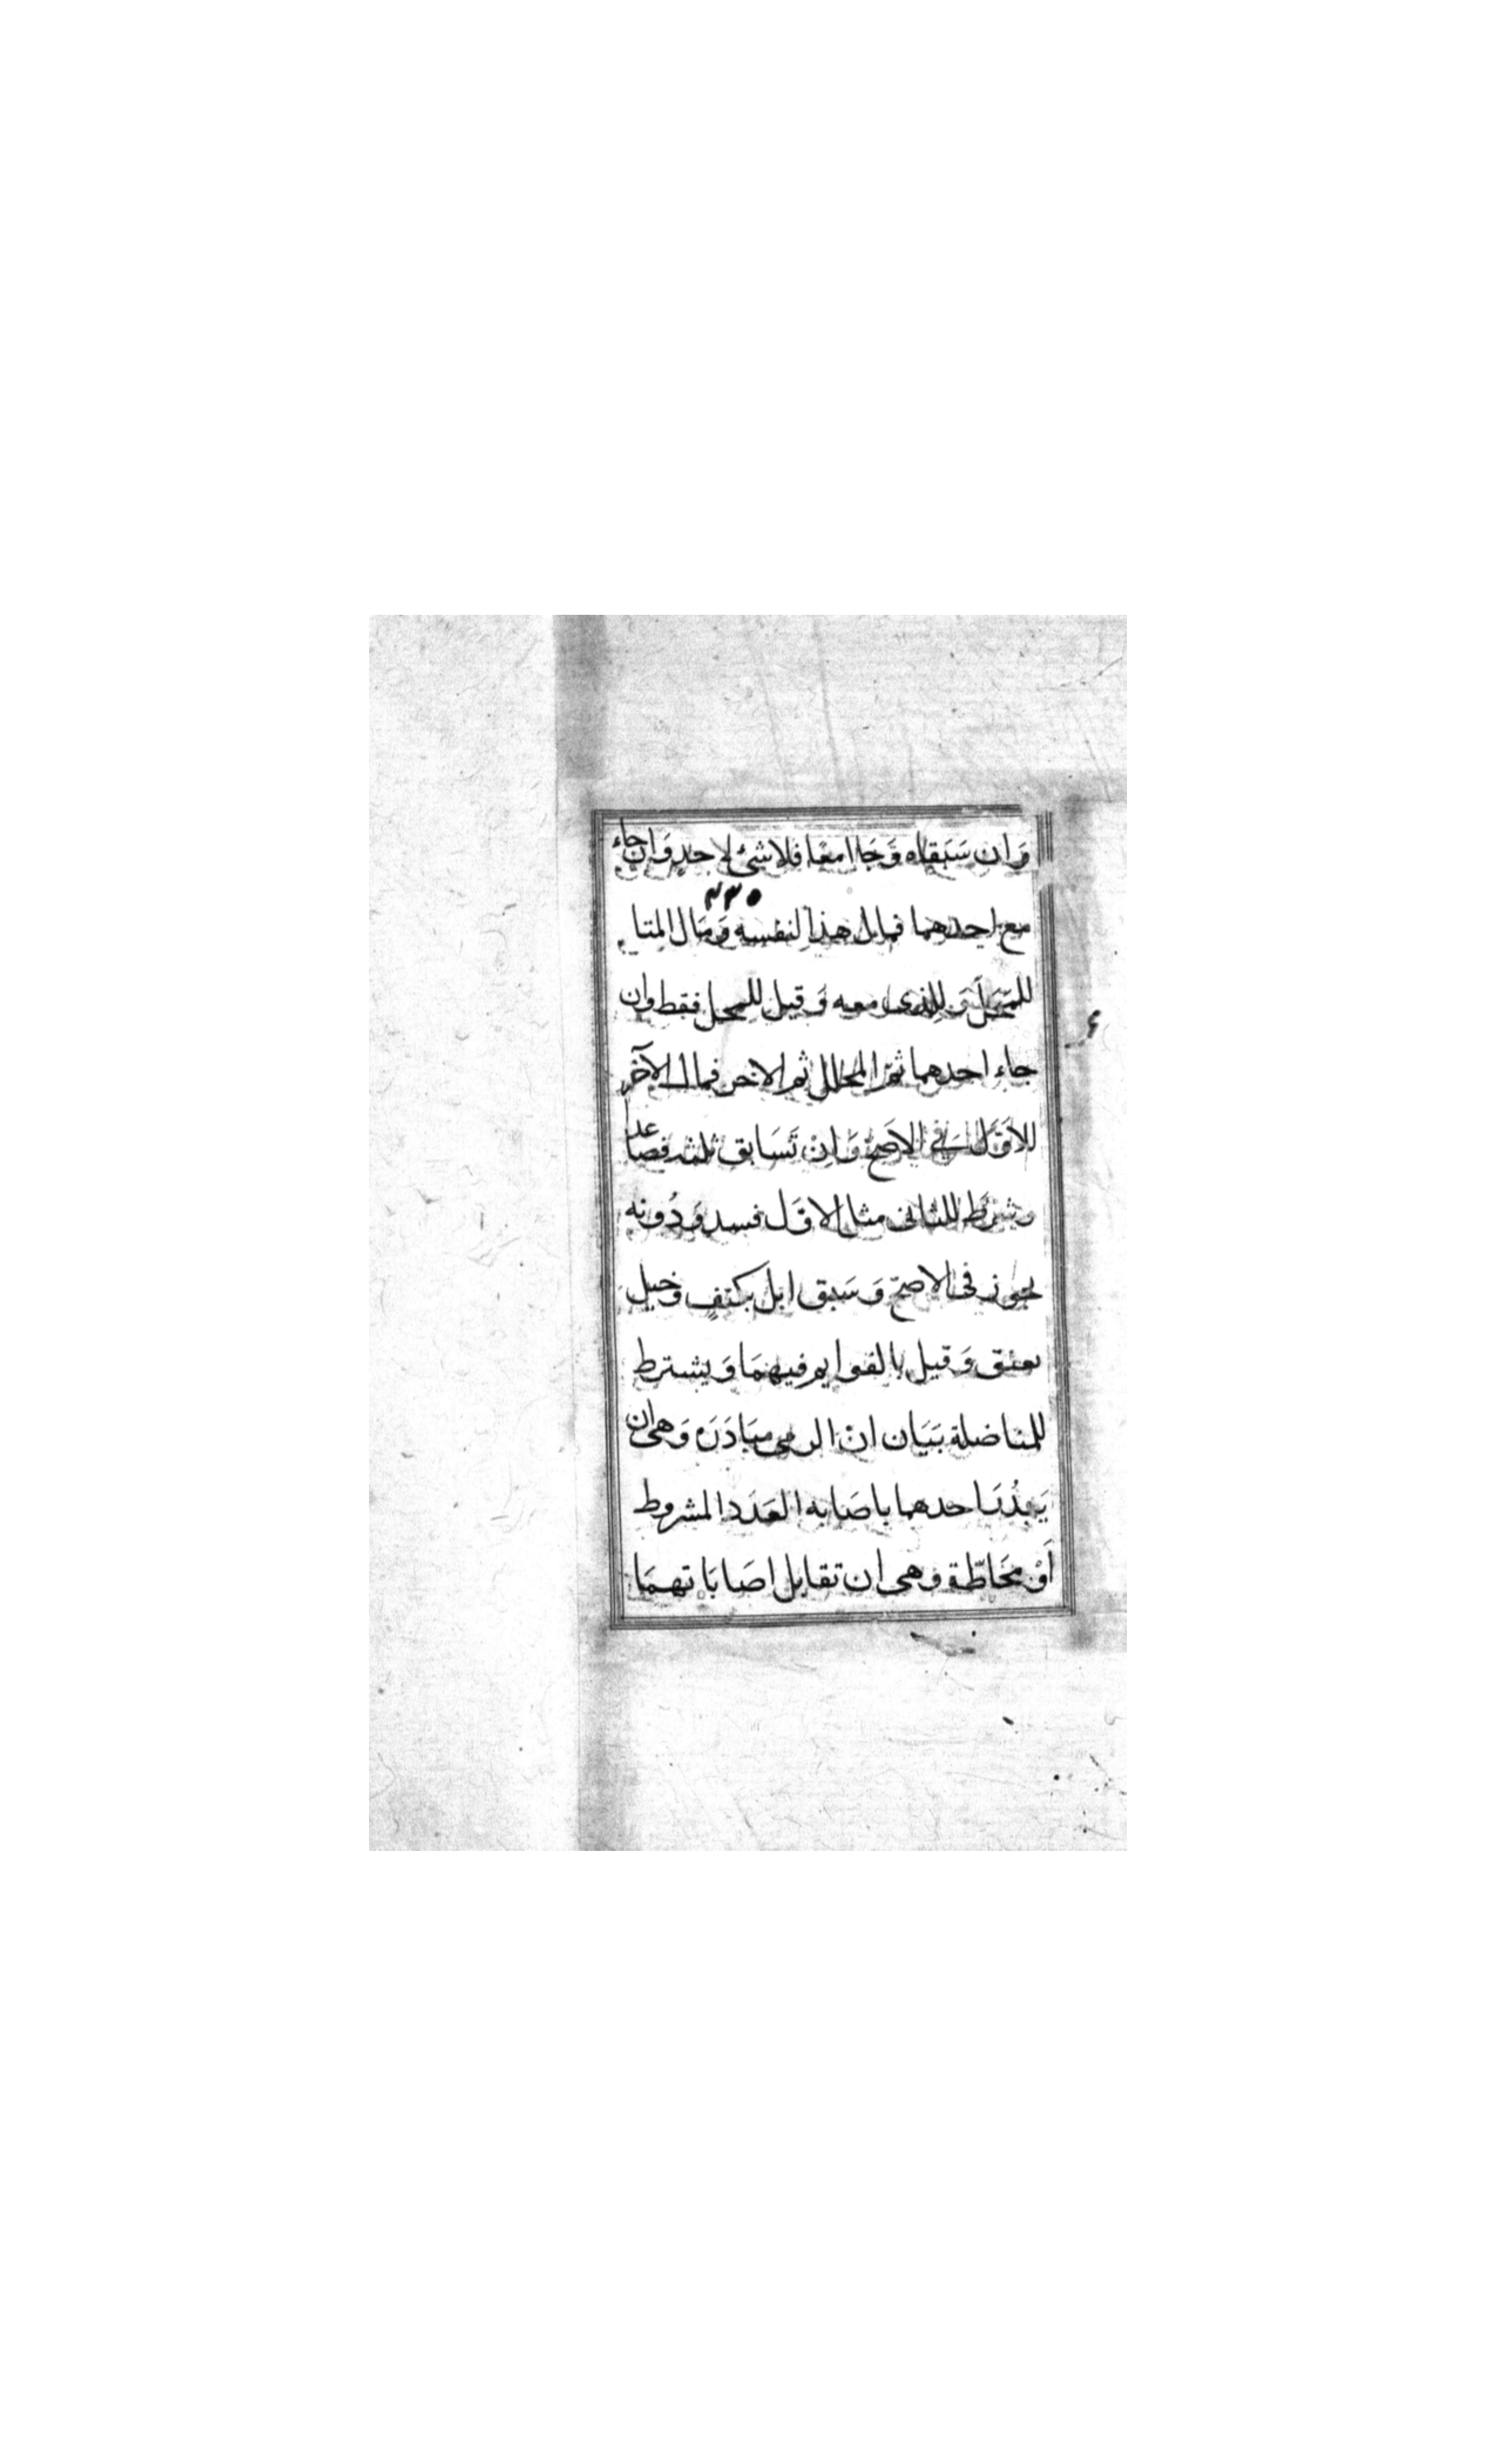 وَان سَبَقاه وَجَاا معًا فلا شئ لاحد وَان جاء
٢٣٥
مع احدهما فمال هذا لنفسه وَمَال المتا
للمحلل وَ للذى معه وَ قيل للمحلل فقط وان
جاء احدهما ثمّ المحلل ثم الاخر فمال الآخر
للاوّل في الاصَحّ وَ انْ تَسَابق ثلثه فصاعدا
وشرط للثانى مثل الاوّل فسد وَ دُونه
يجوز فى الاصحّ وَ سَبق ابل بكتفٍ وَ خيل
بعنق وَ قيل بالقوايم فيهمَا وَ يشترط
للمناضلة بَيَان انّ الرمى مبَادَرَة وَهى ان
يَبدُرَ احدهما باصَابه العَدَد المشروط
اَوْ مُحَاطّة وهى ان تقابل اصَابَاتهمَا